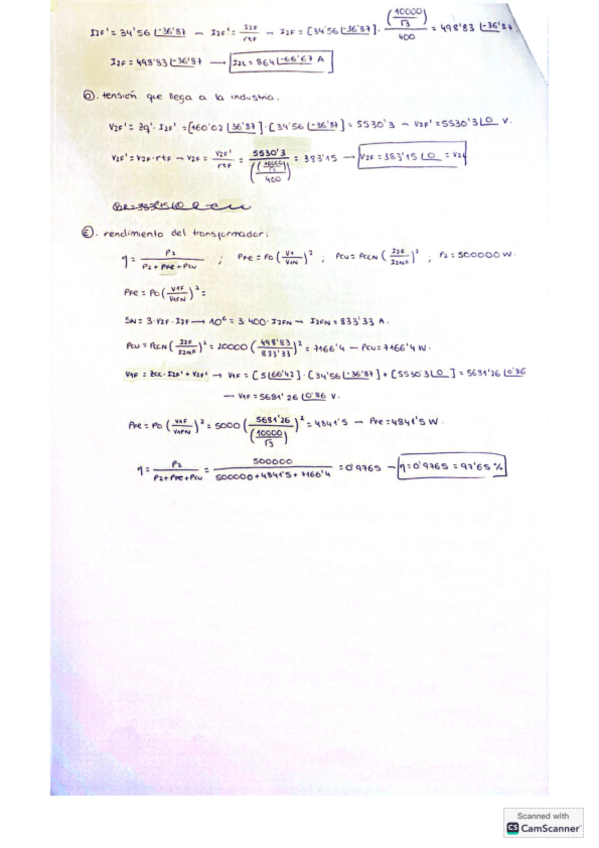 I2F' = 34'56 |-36'87 → I2F' = I2F/rtF → I2F = [34'56 |-36'87] · (10000/√3)/400 = 498'83 |-36'87
I2F = 498'83 |-36'87 → I2L = 864 |-66'67 A
b. tensión que llega a la industria.
V2F' = Zq' · I2F' = [160'02 |36'87] · [34'56 |-36'87] = 5530'3 → V2F' = 5530'3 |0 V.
V2F' = V2F · rtF → V2F = V2F'/rtF = 5530'3/((10000/√3)/400) = 383'15 → V2F = 383'15 |0 = V2L
c. rendimiento del transformador:
η = P2/(P2 + PFe + PCu) ; PFe = P0 (V1/V1N)² ; PCu = PCCN (I2F/I2NF)² ; P2 = 500000 W.
PFe = P0 (V1F/V1FN)² =
SN = 3 · V2F · I2F → 10⁶ = 3 · 400 · I2FN → I2FN = 833'33 A.
PCu = PCCN (I2F/I2NF)² = 20000 (498'83/833'33)² = 7166'4 → PCu = 7166'4 W.
V1F = Zcc · I2F' + V2F' → V1F = [5 |60'42] · [34'56 |-36'87] + [5530'3 |0] = 5681'26 |0'86
→ V1F = 5681'26 |0'86 V.
PFe = P0 (V1F/V1FN)² = 5000 (5681'26/(10000/√3))² = 4841'5 → PFe = 4841'5 W.
η = P2/(P2 + PFe + PCu) = 500000/(500000 + 4841'5 + 7166'4) = 0'9765 → η = 0'9765 = 97'65 %
Scanned with
CS CamScanner